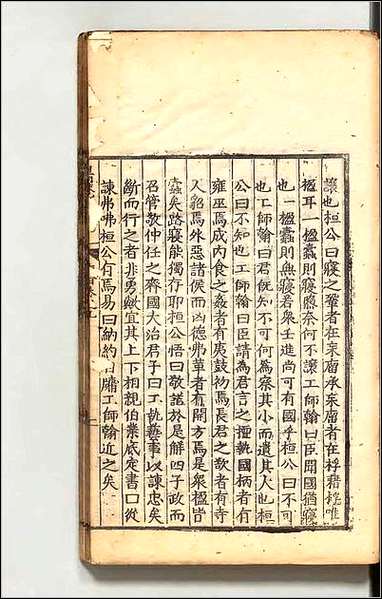 讓也桓公曰寢之聳者在東廇承東廇者在桴藉桴唯
楹耳一楹蠹則寢隳奈何不讓工師翰曰臣聞國猶寢
也一楹蠹則無寢若衆壬進尚可有國乎桓公曰不可
也工師翰曰君旣知不可何爲察其小而遺其大也桓
公曰不知也工師翰曰臣請爲君言之擅執國柄者有
雍巫焉成內食之姦者有夷鼓初焉長君之欲者有寺
人貂焉外惡諸侯而凶德弗革者有開方焉是衆楹皆
蠹矣路寢能獨存耶桓公悟曰敬諾於是解四子政而
召管敬仲任之齊國大治君子曰工執藝事以諫忠矣
斷而行之者非勇歟宜其上下相親伯業底定書曰從
諫弗咈桓公有焉易曰納約自牖工師翰近之矣